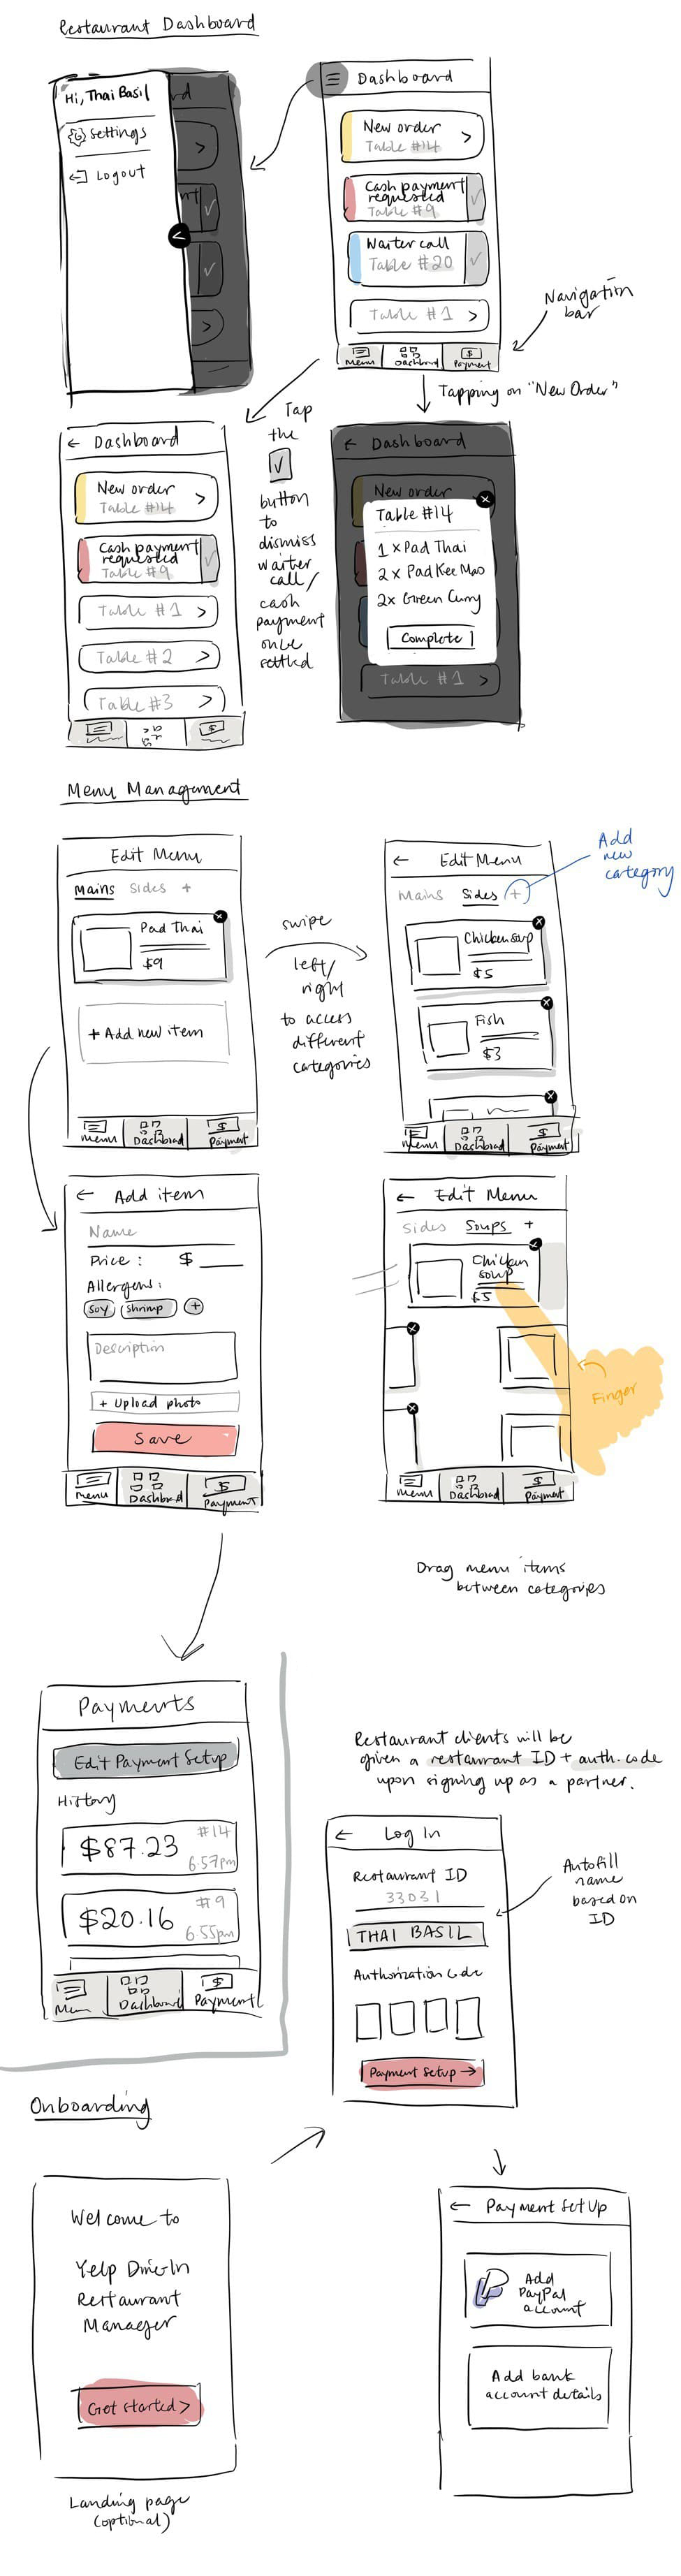 Restaurant Dashboard
Hi, Thai Basil
Settings
Logout
rd
nt
Dashboard
New order
Table #14
Cash payment
requested
Table #9
Waiter call
Table #20
Table #1
Menu
Dashboard
Payment
Navigation
bar
Tapping on "New Order"
Tap
the
button
to
dismiss
waiter
call/
cash
payment
once
settled
Dashboard
New order
Table #14
Cash payment
requested
Table #9
Table #1
Table #2
Table #3
Dashboard
New order
Table #14
1 x Pad Thai
2 x Pad Kee Mao
2x Green Curry
Complete
Table #1
Menu Management
Edit Menu
Mains Sides +
Pad Thai
$9
+ Add new item
Menu
Dashboard
Payment
swipe
left/
right
to access
different
categories
Edit Menu
Mains Sides +
Add
new
category
Chicken soup
$5
Fish
$3
Menu
Dashboard
Payment
Add item
Name
Price : $
Allergens :
Soy shrimp +
Description
+ Upload photo
Save
Menu
Dashboard
Payment
Edit Menu
Sides Soups +
Chicken
soup
$5
Finger
Menu
Dashboard
Payment
Drag menu items
between categories
Payments
Edit Payment Setup
History
$87.23
#14
6:57pm
$20.16
#9
6:55pm
Menu
Dashboard
Payment
Restaurant clients will be
given a restaurant ID + auth. code
upon signing up as a partner.
Log In
Restaurant ID
33031
THAI BASIL
Authorization Code
Payment Setup →
Autofill
name
based on
ID
Onboarding
Welcome to
Yelp Dine-In
Restaurant
Manager
Get started >
Landing page
(optional)
Payment Set Up
Add
PayPal
account
Add bank
account details